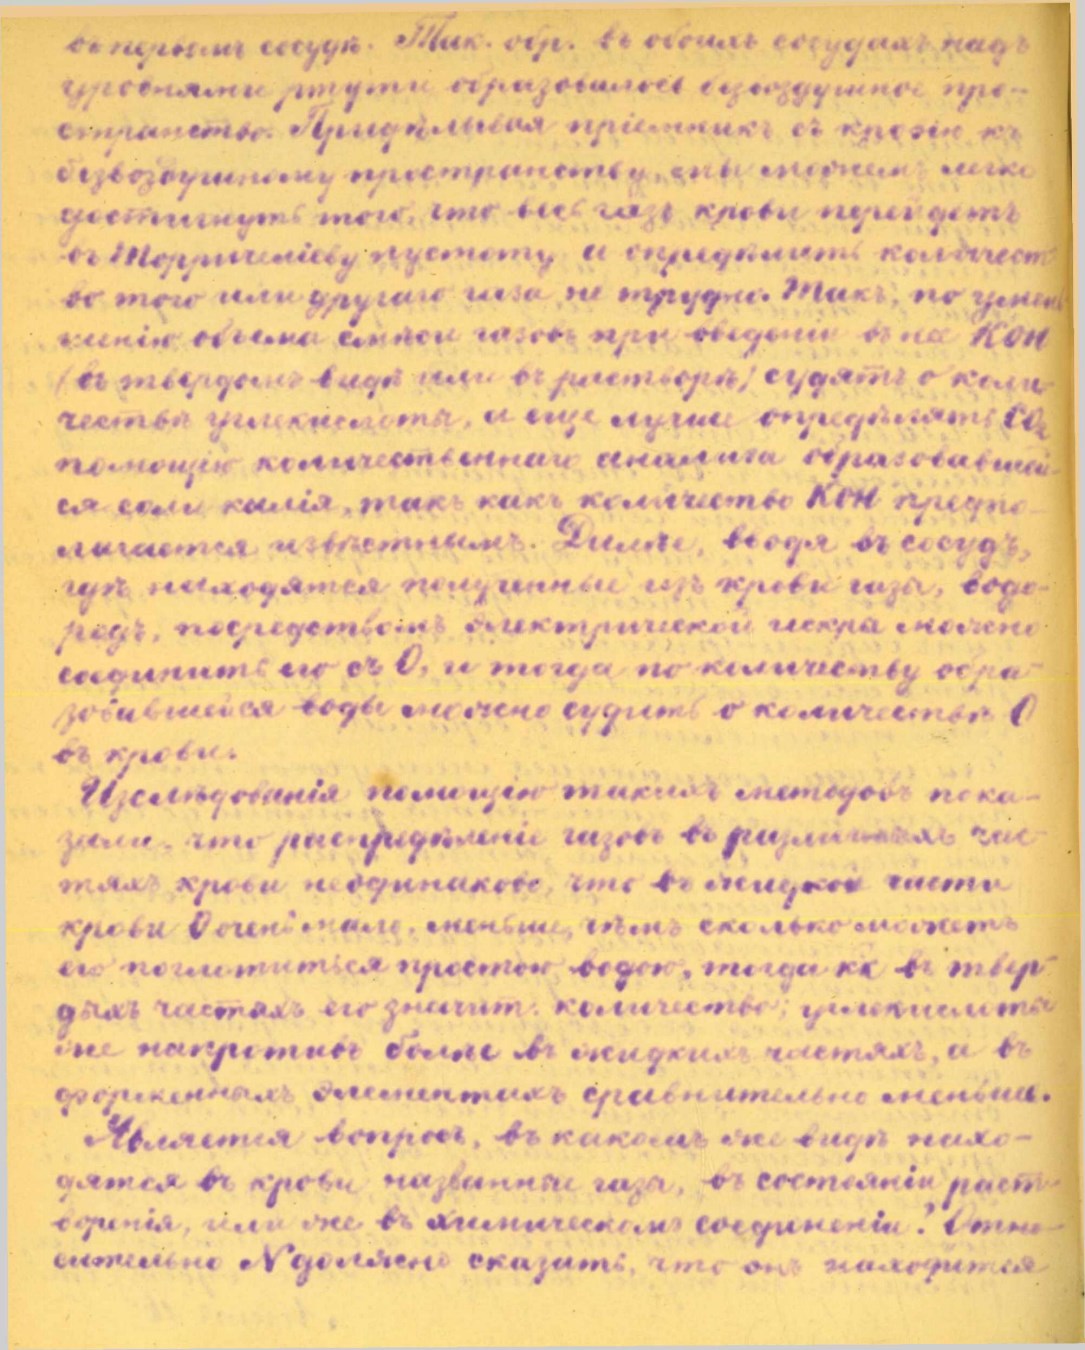 въ первомъ сосудѣ. Так. обр. въ обоихъ сосудахъ надъ
уровнями ртути образовалось безвоздушное про-
странство. Придѣлывая пріемникъ съ кровію къ
безвоздушному пространству, мы можемъ легко
достигнуть того, что весь газъ крови перейдетъ
въ Торричеліеву пустоту и опредѣлить количест-
во того или другаго газа не трудно. Такъ, по умень-
шенію объема смѣси газовъ при введеніи въ нее КОН
(въ твердомъ видѣ или въ растворѣ) судятъ о коли-
чествѣ углекислоты, а еще лучше опредѣлять CO₂
помощію количественнаго анализа образовавшей-
ся соли калія, такъ какъ количество КОН предпо-
лагается извѣстнымъ. Далѣе, вводя въ сосудъ,
гдѣ находятся полученные изъ крови газы, водо-
родъ, посредствомъ электрической искры можно
соединить его съ O, и тогда по количеству обра-
зовавшейся воды можно судить о количествѣ O
въ крови.
Изслѣдованія помощію такихъ методовъ пока-
зали, что распредѣленіе газовъ въ различныхъ час-
тяхъ крови неодинаково, что въ жидкой части
крови O очень мало, меньше, чѣмъ сколько можетъ
его поглотиться простою водою, тогда кк въ твер-
дыхъ частяхъ его значит. количество; углекислоты
же напротивъ болѣе въ жидкихъ частяхъ, а въ
форменныхъ элементахъ сравнительно меньше.
Является вопросъ, въ какомъ же видѣ нахо-
дятся въ крови названные газы, въ состояніи раст-
воренія, или же въ химическомъ соединеніи? Отно-
сительно N должно сказать, что онъ находится